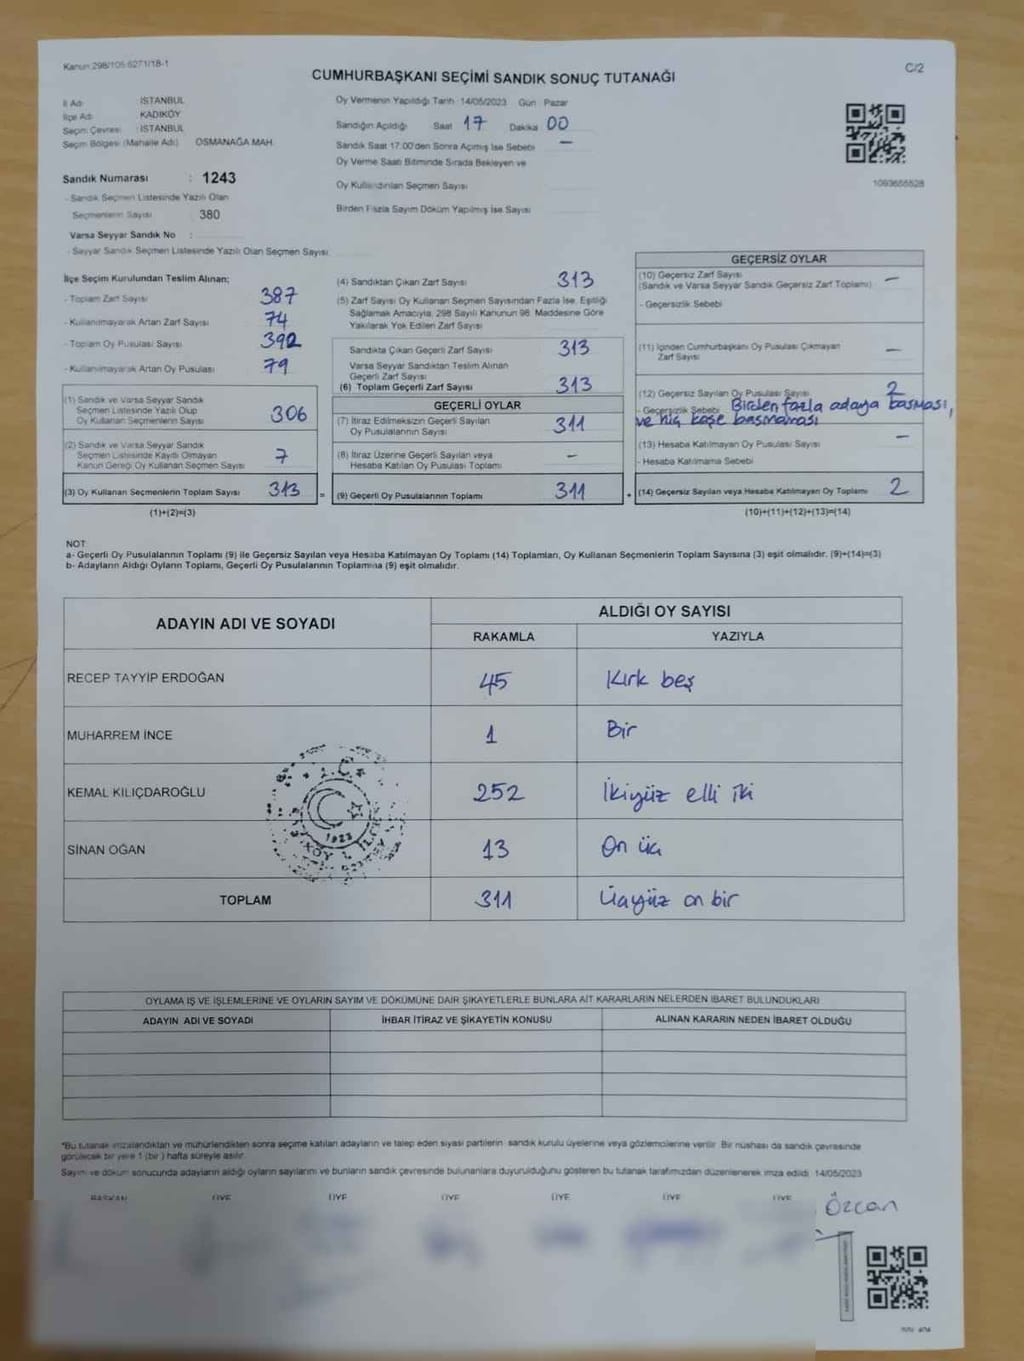 Kanun 298/105-6271/18-1
C/2
CUMHURBAŞKANI SEÇİMİ SANDIK SONUÇ TUTANAĞI
İl Adı İSTANBUL
İlçe Adı KADIKÖY
Seçim Çevresi : İSTANBUL
Seçim Bölgesi (Mahalle Adı) OSMANAĞA MAH.
Sandık Numarası : 1243
- Sandık Seçmen Listesinde Yazılı Olan
Seçmenlerin Sayısı 380
Varsa Seyyar Sandık No :
- Seyyar Sandık Seçmen Listesinde Yazılı Olan Seçmen Sayısı:
Oy Vermenin Yapıldığı Tarih : 14/05/2023 Gün Pazar
Sandığın Açıldığı Saat 17 Dakika 00
Sandık Saat 17:00'den Sonra Açılmış İse Sebebi —
Oy Verme Saati Bitiminde Sırada Bekleyen ve
Oy Kullandırılan Seçmen Sayısı
Birden Fazla Sayım Döküm Yapılmış İse Sayısı
1093655528
İlçe Seçim Kurulundan Teslim Alınan;
- Toplam Zarf Sayısı 387
- Kullanılmayarak Artan Zarf Sayısı 74
- Toplam Oy Pusulası Sayısı 392
- Kullanılmayarak Artan Oy Pusulası 79
(1) Sandık ve Varsa Seyyar Sandık
Seçmen Listesinde Yazılı Olup
Oy Kullanan Seçmenlerin Sayısı 306
(2) Sandık ve Varsa Seyyar Sandık
Seçmen Listesinde Kayıtlı Olmayan
Kanun Gereği Oy Kullanan Seçmen Sayısı 7
(3) Oy Kullanan Seçmenlerin Toplam Sayısı 313 =
(1)+(2)=(3)
(4) Sandıktan Çıkan Zarf Sayısı 313
(5) Zarf Sayısı Oy Kullanan Seçmen Sayısından Fazla İse, Eşitliği
Sağlamak Amacıyla, 298 Sayılı Kanunun 98. Maddesine Göre
Yakılarak Yok Edilen Zarf Sayısı
Sandıkta Çıkan Geçerli Zarf Sayısı 313
Varsa Seyyar Sandıktan Teslim Alınan
Geçerli Zarf Sayısı
(6) Toplam Geçerli Zarf Sayısı 313
GEÇERLİ OYLAR
(7) İtiraz Edilmeksizin Geçerli Sayılan
Oy Pusulalarının Sayısı 311
(8) İtiraz Üzerine Geçerli Sayılan veya
Hesaba Katılan Oy Pusulası Toplamı —
(9) Geçerli Oy Pusulalarının Toplamı 311 +
GEÇERSİZ OYLAR
(10) Geçersiz Zarf Sayısı —
(Sandık ve Varsa Seyyar Sandık Geçersiz Zarf Toplamı)
- Geçersizlik Sebebi
(11) İçinden Cumhurbaşkanı Oy Pusulası Çıkmayan
Zarf Sayısı —
(12) Geçersiz Sayılan Oy Pusulası Sayısı 2
- Geçersizlik Sebebi Birden fazla adaya basması,
ve hiç kaşe basmaması
(13) Hesaba Katılmayan Oy Pusulası Sayısı —
- Hesaba Katılmama Sebebi
(14) Geçersiz Sayılan veya Hesaba Katılmayan Oy Toplamı 2
(10)+(11)+(12)+(13)=(14)
NOT:
a- Geçerli Oy Pusulalarının Toplamı (9) ile Geçersiz Sayılan veya Hesaba Katılmayan Oy Toplamı (14) Toplamları, Oy Kullanan Seçmenlerin Toplam Sayısına (3) eşit olmalıdır. (9)+(14)=(3)
b- Adayların Aldığı Oyların Toplamı, Geçerli Oy Pusulalarının Toplamına (9) eşit olmalıdır.
ADAYIN ADI VE SOYADI
ALDIĞI OY SAYISI
RAKAMLA YAZIYLA
RECEP TAYYİP ERDOĞAN 45 Kırk beş
MUHARREM İNCE 1 Bir
KEMAL KILIÇDAROĞLU 252 İkiyüz elli iki
SİNAN OĞAN 13 On üç
TOPLAM 311 Üçyüz on bir
1923
OYLAMA İŞ VE İŞLEMLERİNE VE OYLARIN SAYIM VE DÖKÜMÜNE DAİR ŞİKAYETLERLE BUNLARA AİT KARARLARIN NELERDEN İBARET BULUNDUKLARI
ADAYIN ADI VE SOYADI İHBAR İTİRAZ VE ŞİKAYETİN KONUSU ALINAN KARARIN NEDEN İBARET OLDUĞU
*Bu tutanak imzalandıktan ve mühürlendikten sonra seçime katılan adayların ve talep eden siyasi partilerin sandık kurulu üyelerine veya gözlemcilerine verilir. Bir nüshası da sandık çevresinde
görülecek bir yere 1 (bir) hafta süreyle asılır.
Sayım ve döküm sonucunda adayların aldığı oyların sayılarını ve bunların sandık çevresinde bulunanlara duyurulduğunu gösteren bu tutanak tarafımızdan düzenlenerek imza edildi. 14/05/2023
BAŞKAN ÜYE ÜYE ÜYE ÜYE ÜYE ÜYE
Özcan